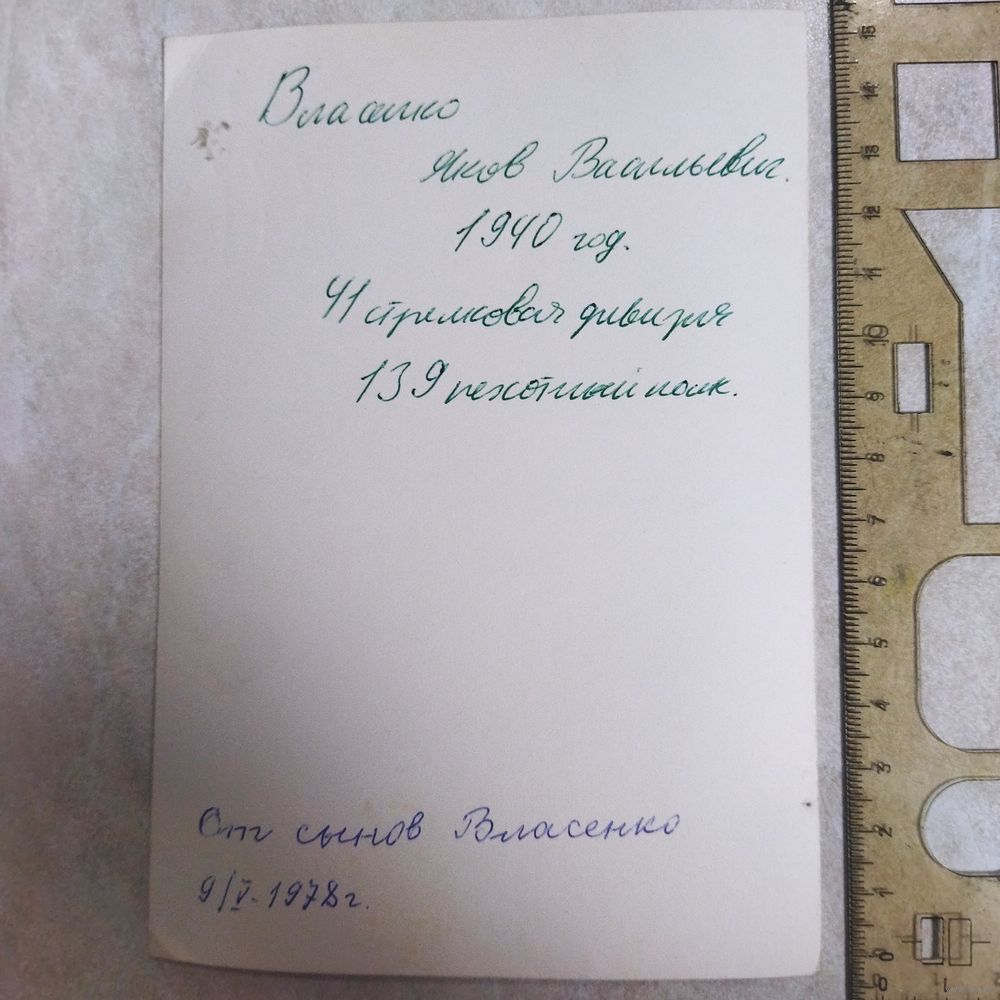 Власенко
Яков Васильевич.
1940 год.
41 стрелковая дивизия
139 пехотный полк.
От сынов Власенко
9/V-1978г.
15
14
13
12
11
10
9
8
7
6
5
4
3
2
1
0